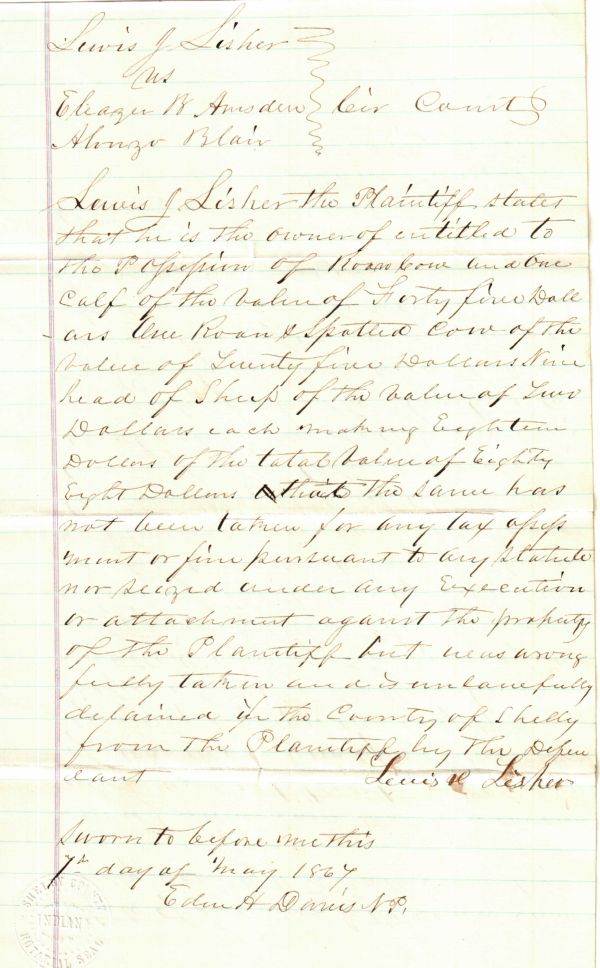 Lewis J Lisher
vs
Eleazer B Amsden Cir Court
Alonzo Blair
Lewis J Lisher the Plaintiff states
that he is the owner of entitled to
the Possession of Roan Cow and One
Calf of the Value of Forty five Doll
ars One Roan & Spotted Cow of the
Value of Twenty five Dollars Nine
head of Sheep of the Value of Two
Dollars each making Eighteen
Dollars of the total Value of Eighty
Eight Dollars that the same has
not been taken for any tax assess
ment or fine pursuant to any statute
nor seized under any Execution
or attachment against the property
of the Plaintiff but was wrong
fully taken and is unlawfully
detained in the County of Shelby
from the Plaintiff by the Defen
dant Lewis Lisher
Sworn to before me this
7th day of May 1867
Eden H Davis N.P.
SHELBY COUNTY
INDIANA
NOTARIAL SEAL